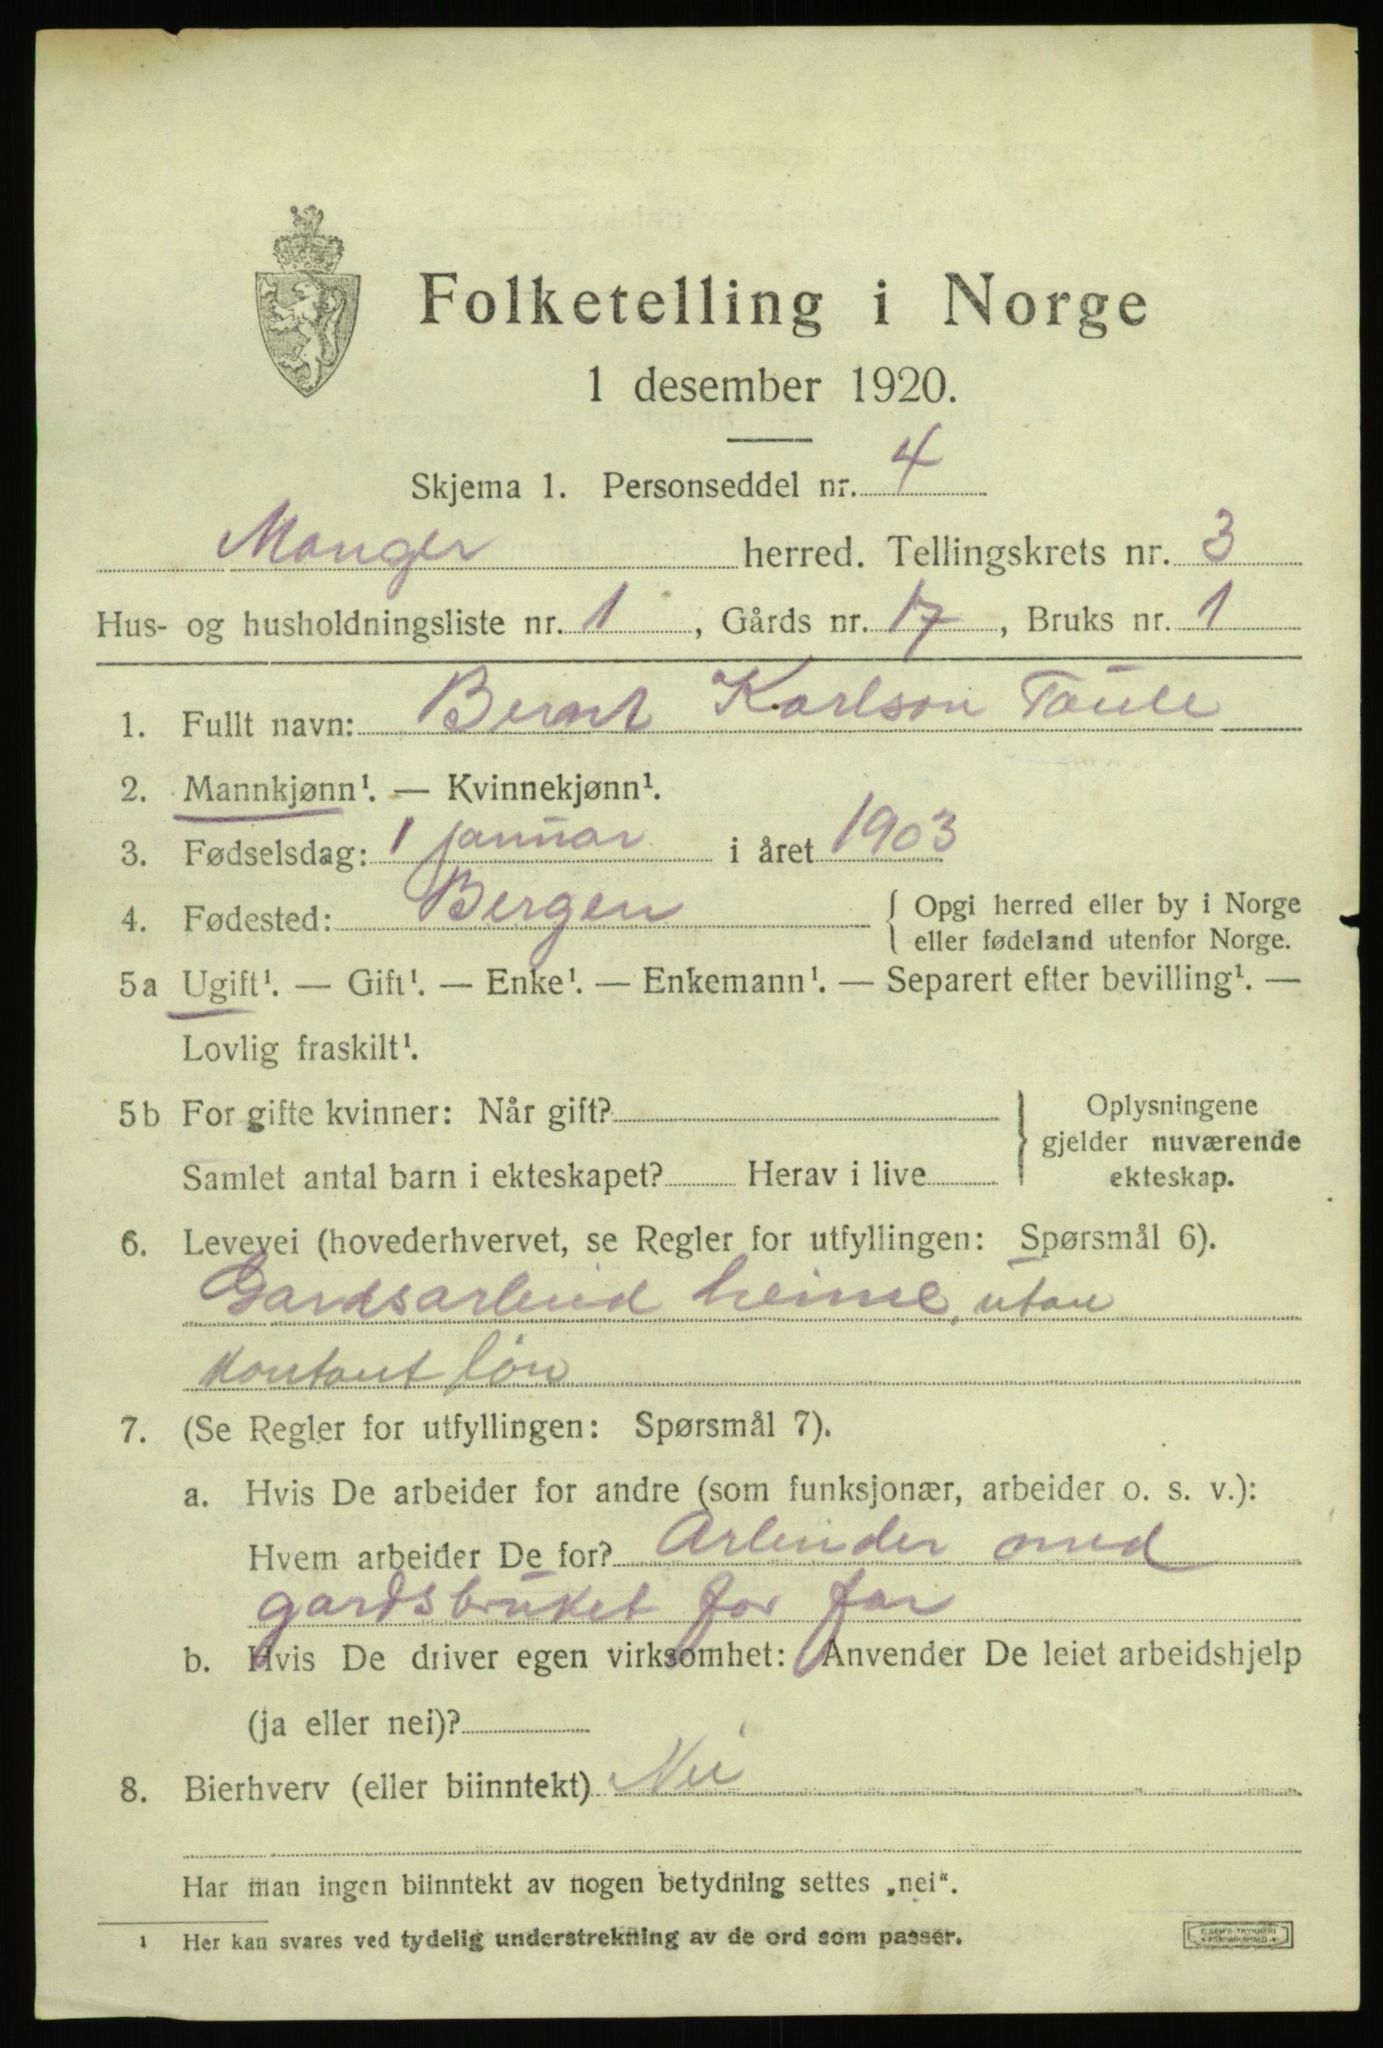 Folketelling i Norge
1 desember 1920.
Skjema 1. Personseddel nr. 4
Manger herred. Tellingskrets nr. 3
Hus- og husholdningsliste nr. 1, Gårds nr. 17, Bruks nr. 1
1. Fullt navn: Bernt Karlson Taule
2. Mannkjønn¹. — Kvinnekjønn¹.
3. Fødselsdag: 1 januar i året 1903
4. Fødested: Bergen { Opgi herred eller by i Norge
eller fødeland utenfor Norge.
5a Ugift¹. — Gift¹. — Enke¹. — Enkemann¹. — Separert efter bevilling¹. —
Lovlig fraskilt¹.
5b For gifte kvinner: Når gift? } Oplysningene
gjelder nuværende
Samlet antal barn i ekteskapet? Herav i live ekteskap.
6. Levevei (hovederhvervet, se Regler for utfyllingen: Spørsmål 6).
Gardsarbeid heime, utan
kontant løn
7. (Se Regler for utfyllingen: Spørsmål 7).
a. Hvis De arbeider for andre (som funksjonær, arbeider o. s. v.):
Hvem arbeider De for? Arbeider med
gardsbruket for far
b. Hvis De driver egen virksomhet: Anvender De leiet arbeidshjelp
(ja eller nei)?
8. Bierhverv (eller biinntekt) Nei
Har man ingen biinntekt av nogen betydning settes „nei“.
¹ Her kan svares ved tydelig understrekning av de ord som passer.